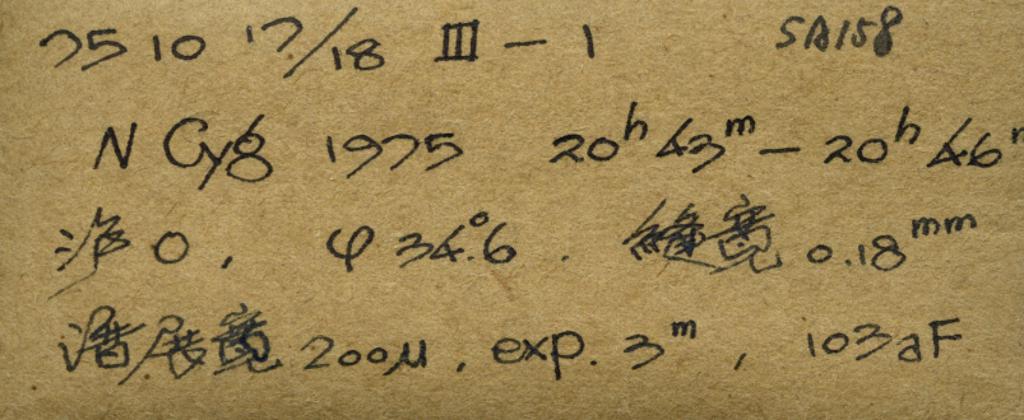 75 10 17/18 III – 1 SA158
N Cyg 1975 20ʰ43ᵐ – 20ʰ46ᵐ
0, φ 34.°6. 縫寬 0.18ᵐᵐ
譜展寬 200μ, exp. 3ᵐ, 103aF